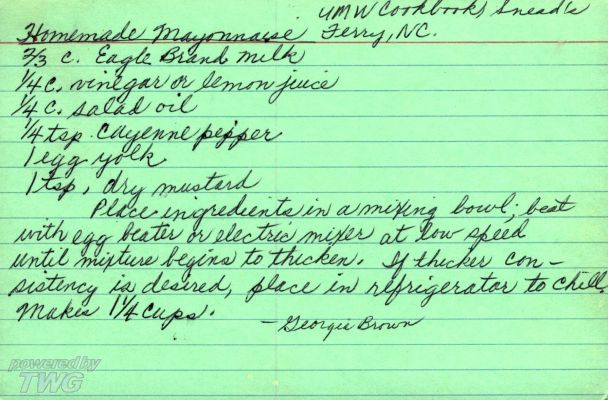 UMW Cookbook, Sneads
Homemade Mayonnaise Ferry, NC.
2/3 c. Eagle Brand milk
1/4 c. vinegar or lemon juice
1/4 c. salad oil
1/4 tsp. cayenne pepper
1 egg yolk
1 tsp. dry mustard
Place ingredients in a mixing bowl; beat
with egg beater or electric mixer at low speed
until mixture begins to thicken. If thicker con-
sistency is desired, place in refrigerator to chill.
Makes 1 1/4 cups.
- Georgie Brown
powered by
TWG